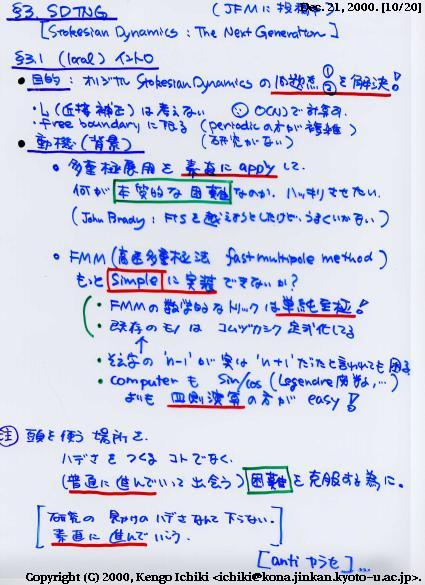 §3. SDTNG (JFMに投稿中) Dec. 21, 2000. [10/20]
[Stokesian Dynamics : The Next Generation]
§3.1 (local) イントロ
• 目的 : オリジナル Stokesian Dynamics の 問題点 ① ② を解決!
• L (近接補正) は考えない ② O(N)で計算す.
• free boundary に限る (periodicの方が複雑)
• 動機 (背景)
• 多重極展開を 素直に apply して.
何が 本質的な困難 なのか. ハッキリさせたい.
(John Brady: FTSを越えようとしたけど, うまくいかない)
• FMM (高速多重極法 fast multipole method)
もっと Simple に 実装できないか?
• FMMの数学的なトリックは単純至極!
• 既存のモノは コムヅカシク 定式化してる
↑
• 'n-1' が 実は 'n+1' だったと言われても困る
• computer も Sin/cos (Legendre 関数,...)
よりも 四則演算の方が easy!
注 頭を使う場所を.
ハデさを つくる コトでなく.
(普直に進んでいって出会う) 困難 を 克服する為に.
[研究の見かけのハデさなんて下らない.
素直に進んでいこう.]
[anti ヤラセ]...
Copyright (C) 2000, Kengo Ichiki <ichiki@kona.jinkan.kyoto-u.ac.jp>.